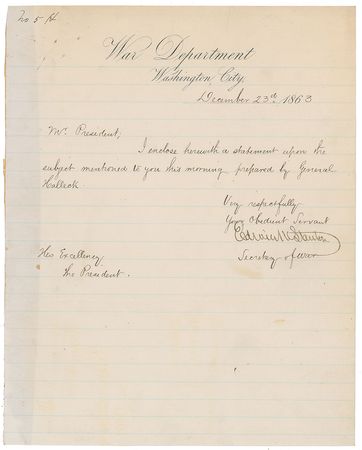 No 5 H
War Department
Washington City,
December 23rd 1863
Mr. President,
I enclose herewith a statement upon the
subject mentioned to you this morning prepared by General
Halleck
Very respectfully
Your Obedient Servant
Edwin M Stanton
Secretary of War
His Excellency
The President.